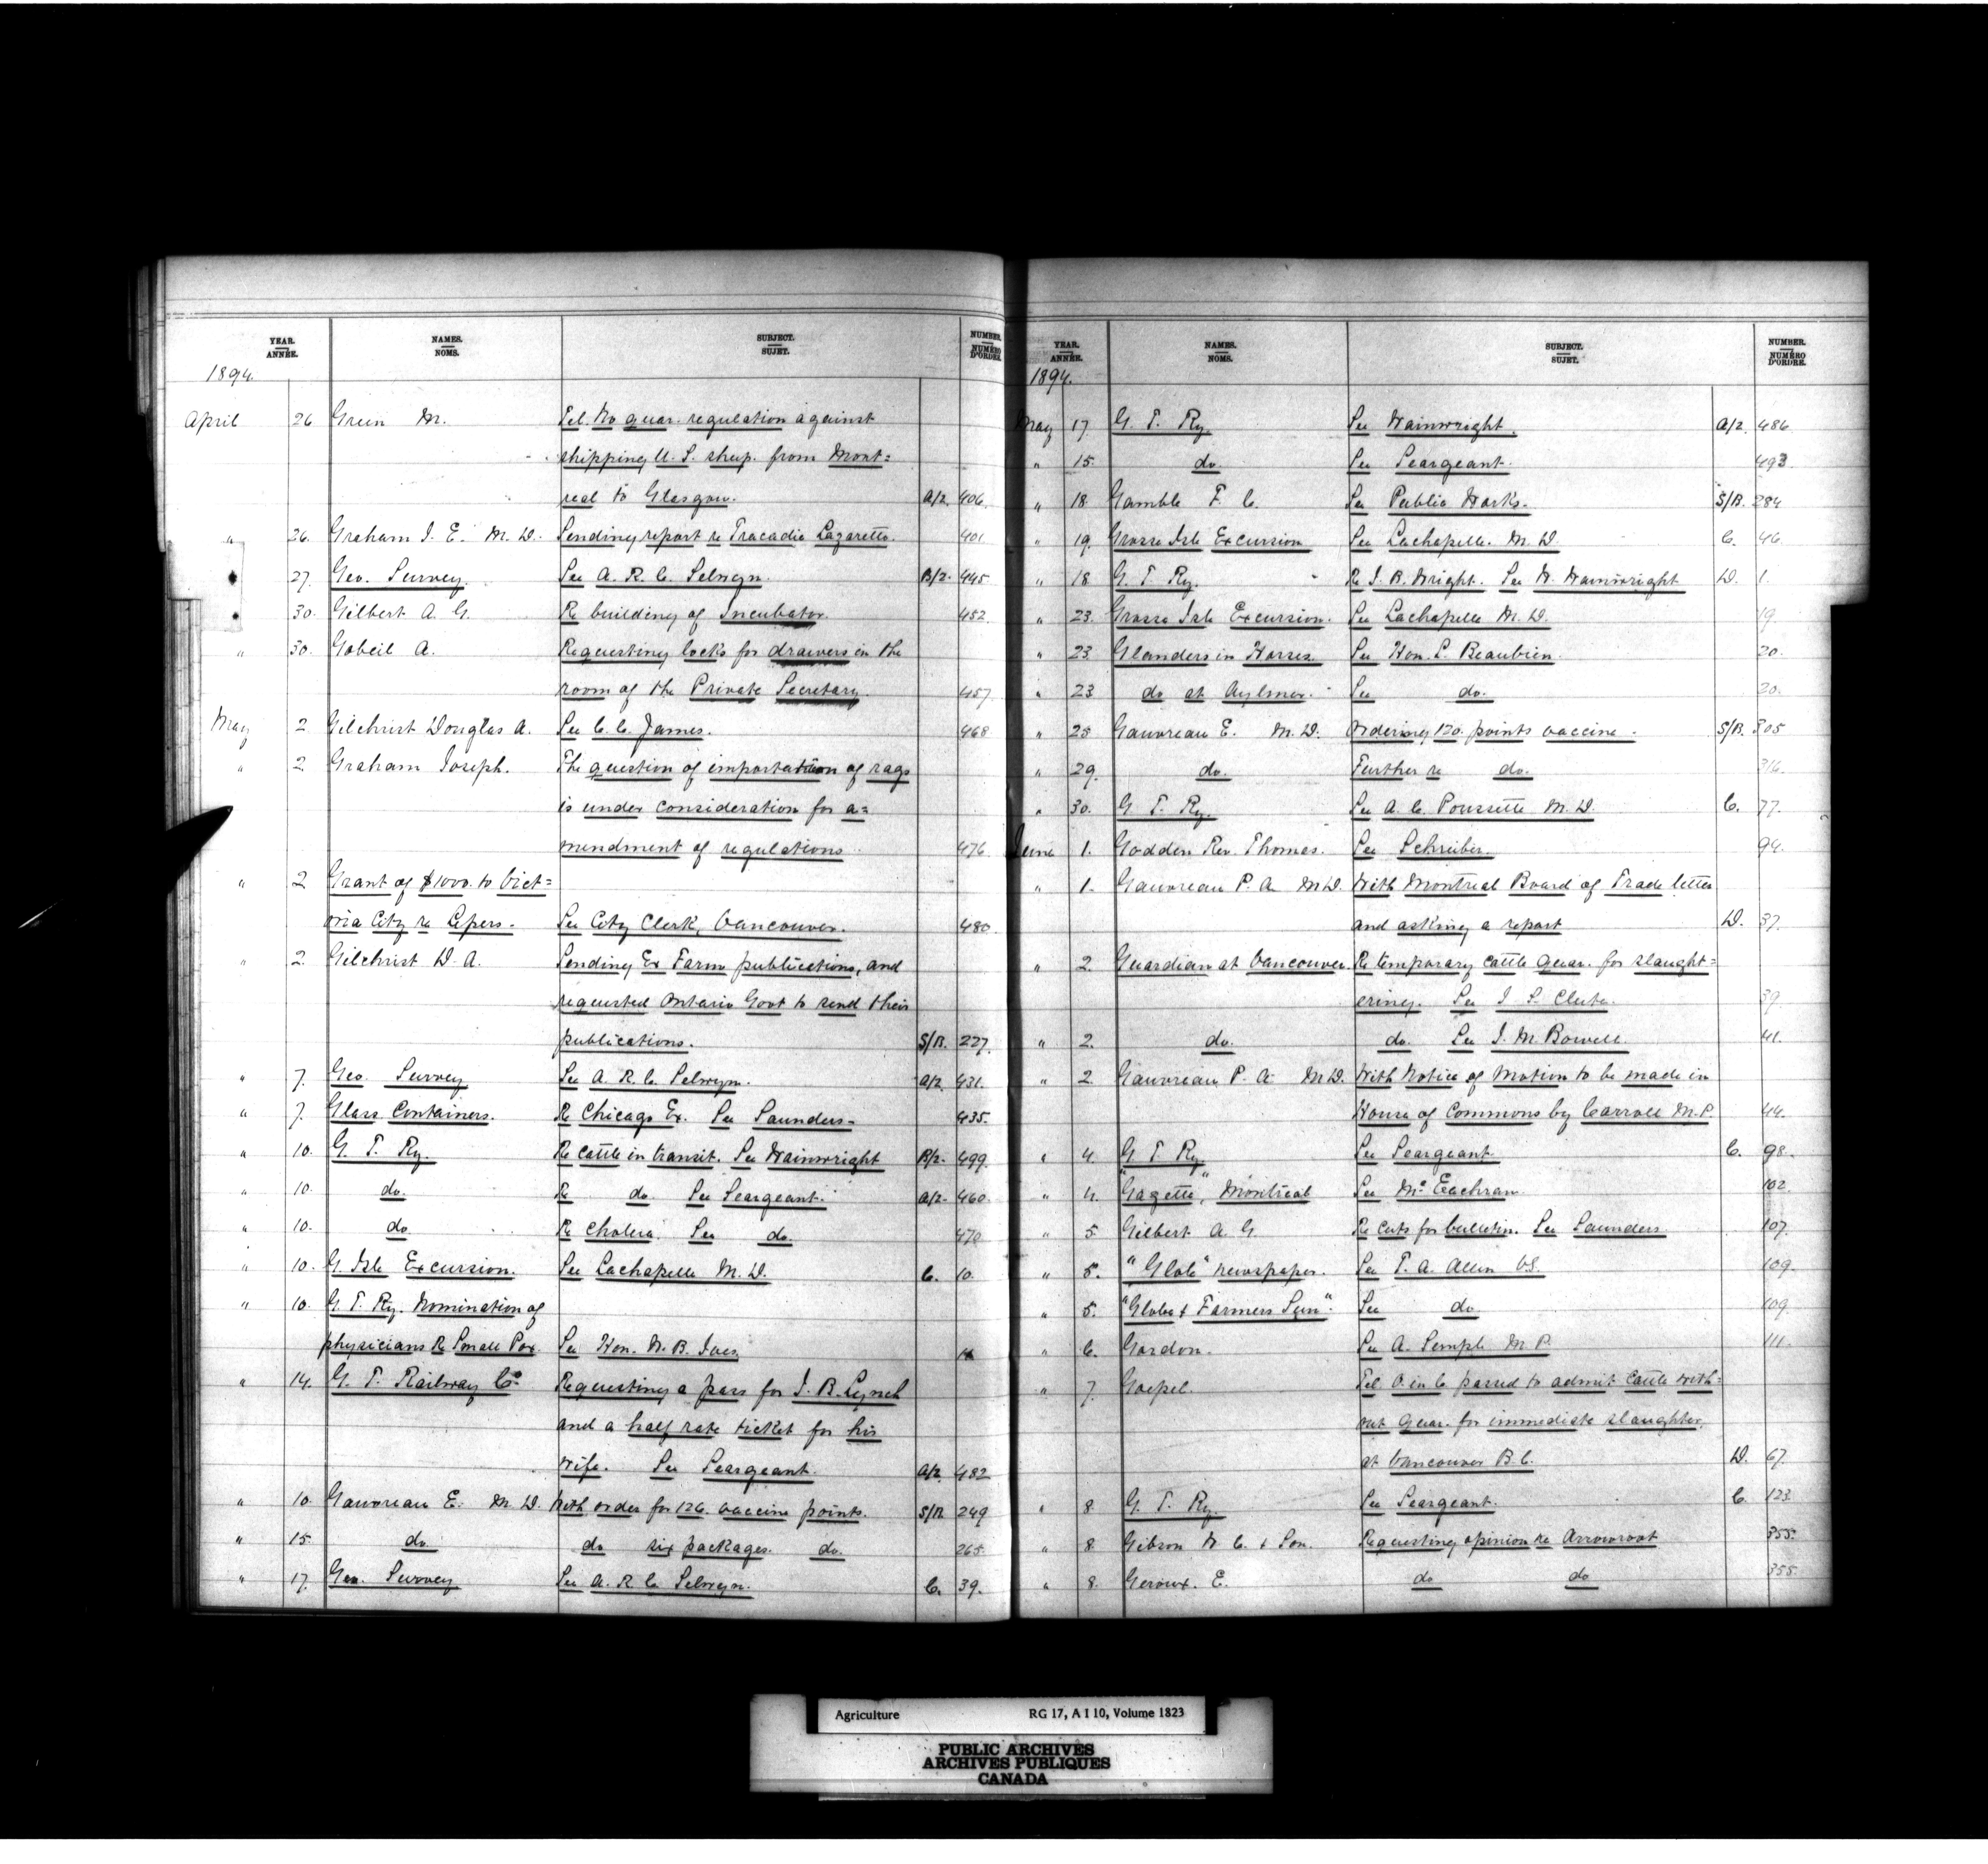 YEAR. ANNÉE. NAMES. NOMS. SUBJECT. SUJET. NUMBER. NUMÉRO D'ORDRE.
1894.
April 26 Green M. Tel. No quar. regulation against
shipping U. S. sheep. from Mont=
real to Glasgow. A/2. 406.
" 26. Graham J. E. M. D. Sending report re Tracadie Lazaretto. 401
27. Geo. Survey. See A. R. C. Selwyn. B/2. 445.
30. Gilbert A. G. Re building of Incubator. 452
" 30. Gobeil A. Requesting locks for drawers in the
room of the Private Secretary. 457.
May 2 Gilchrist Douglas A. See C. C. James. 468
" 2 Graham Joseph. The question of importation of rags
is under consideration for a=
mendment of regulations. 476
" 2 Grant of $1000. to Vict=
oria City re Lepers. See City Clerk, Vancouver. 480.
" 2. Gilchrist D. A. Sending Ex Farm publications, and
requested Ontario Govt to send their
publications. S/B. 227.
" 7. Geo. Survey See A. R. C. Selwyn. A/2. 431.
" 7. Glass Containers. Re Chicago Ex. See Saunders. 435.
" 10. G. T. Ry. Re cattle in transit. See Wainwright B/2. 499.
" 10. do. Re do See Seargeant. A/2. 460.
" 10. do Re Cholera. See do. 470
" 10. G. Isle Excursion. See Lachapelle M. D. C. 10.
" 10. G. T. Ry. Nomination of
physicians Re Small Pox. See Hon. W. B. Ives
" 14. G. T. Railway Co. Requesting a pass for J. B. Lynch
and a half rate ticket for his
wife. See Seargeant. A/2. 482
" 10. Gauvreau E. M. D. With order for 126. vaccine points. S/B. 249
" 15. do do six packages. do. 265.
" 17. Geo. Survey See A. R. C. Selwyn. C. 39.
YEAR. ANNÉE. NAMES. NOMS. SUBJECT. SUJET. NUMBER. NUMÉRO D'ORDRE.
1894.
May 17. G. T. Ry. See Wainwright. A/2. 486
" 15. do. See Seargeant. 493.
" 18. Gamble F. C. See Public Works. S/B. 284
" 19. Grosse Isle Excursion See Lachapelle. M. D. C. 46.
" 18 G. T. Ry. Re J. B. Wright. See W. Wainwright D. 1.
" 23. Grosse Isle Excursion. See Lachapelle M. D. 19.
" 23. Glanders in Horses. See Hon. L. Beaubien. 20.
" 23 do at Aylmer. See do. 20.
" 25 Gauvreau E. M. D. Ordering 120. points vaccine. S/B. 305
" 29. do. Further re do. 316.
" 30. G. T. Ry. See A. C. Poussette M. D. C. 77.
June 1. Godden Rev. Thomas. See Schreiber. 94.
" 1. Gauvreau P. A. M D. With Montreal Board of Trade letter
and asking a report D. 37.
" 2. Guardian at Vancouver. Re temporary cattle quar. for slaught=
ering. See J. S. Clute. 39.
" 2. do. do. See J. M. Bowell. 41.
" 2 Gauvreau P. A. M D. With Notice of Motion to be made in
House of Commons by Carroll M. P. 44.
" 4. G. T. Ry. See Seargeant. C. 98.
" 4. "Gazette", Montreal See McEachran. 102
" 5 Gilbert A. G. Re cuts for bulletin. See Saunders. 107.
" 5. "Globe" newspaper. See T. A. Allen V.S. 109.
" 5. "Globe & Farmers Sun". See do 109.
" 6. Gordon. See A. Semple M. P. 111.
" 7. Goepel. Tel. O. in C. passed to admit cattle with=
out quar. for immediate slaughter,
at Vancouver B. C. D. 67.
" 8 G. T. Ry. See Seargeant. C. 123.
" 8. Gibson W. C. & Son. Requesting opinion re Arrowroot 355.
" 8. Geroux. E. do do 355.
Agriculture RG 17, A I 10, Volume 1823
PUBLIC ARCHIVES
ARCHIVES PUBLIQUES
CANADA